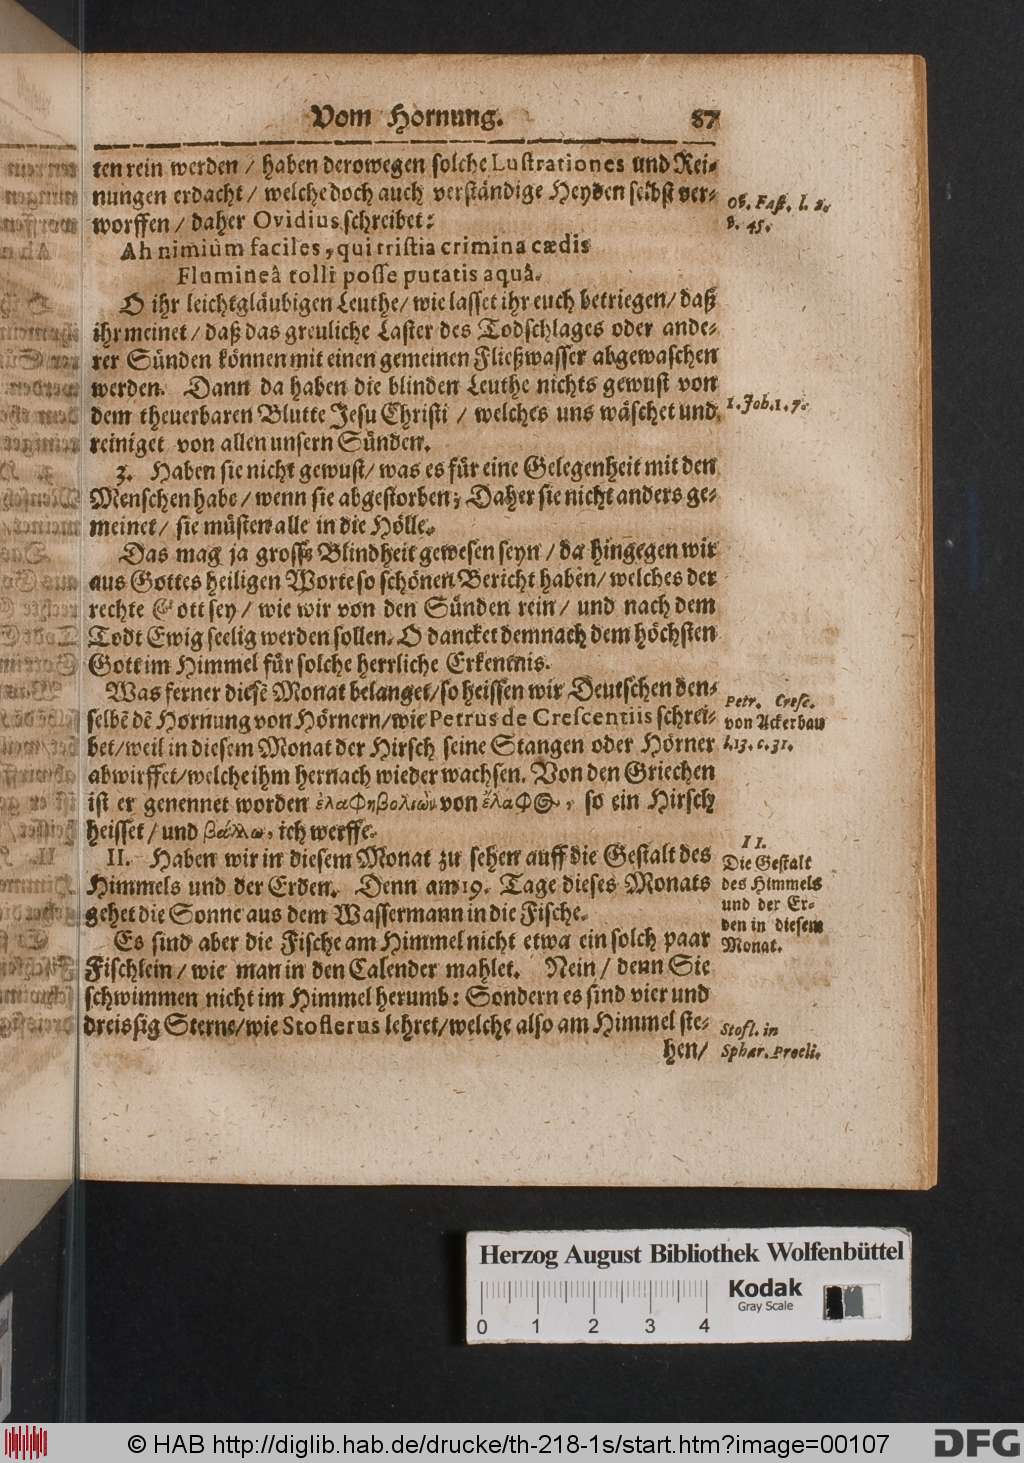 Vom Hornung. 87
ten rein werden / haben derowegen solche Lustrationes und Rei-
nungen erdacht / welche doch auch verständige Heyden selbst ver-
worffen / daher Ovidius schreibet:
Ah nimiùm faciles, qui tristia crimina cædis
Flumineâ tolli posse putatis aquâ.
O ihr leichtgläubigen Leuthe / wie lasset ihr euch betriegen / daß
ihr meinet / daß das greuliche Laster des Todschlages oder ande-
rer Sünden können mit einen gemeinen Fließwasser abgewaschen
werden. Dann da haben die blinden Leuthe nichts gewust von
dem theuerbaren Blutte Jesu Christi / welches uns wäschet und
reiniget von allen unsern Sünden.
3. Haben sie nicht gewust / was es für eine Gelegenheit mit den
Menschen habe / wenn sie abgestorben; Daher sie nicht anders ge-
meinet / sie müsten alle in die Hölle.
Das mag ja grosse Blindheit gewesen seyn / da hingegen wir
aus Gottes heiligen Worte so schönen Bericht haben / welches der
rechte Gott sey / wie wir von den Sünden rein / und nach dem
Todt Ewig seelig werden sollen. O dancket demnach dem höchsten
Gott im Himmel für solche herrliche Erkentnis.
Was ferner diesẽ Monat belanget / so heissen wir Deutschen den-
selbẽ dẽ Hornung von Hörnern / wie Petrus de Crescentiis schrei-
bet / weil in diesem Monat der Hirsch seine Stangen oder Hörner
abwirffet / welche ihm hernach wieder wachsen. Von den Griechen
ist er genennet worden ἐλαφηβολιών von ἔλαφος, so ein Hirsch
heisset / und βάλλω, ich werffe.
II. Haben wir in diesem Monat zu sehen auff die Gestalt des
Himmels und der Erden. Denn am 19. Tage dieses Monats
gehet die Sonne aus dem Wassermann in die Fische.
Es sind aber die Fische am Himmel nicht etwa ein solch paar
Fischlein / wie man in den Calender mahlet. Nein / denn Sie
schwimmen nicht im Himmel herumb: Sondern es sind vier und
dreissig Sterne / wie Stoflerus lehret / welche also am Himmel ste-
hen /
Ob. Fast. l. 2.
v. 45.
1. Joh. 1. 7.
Petr. Cresc.
von Ackerbau
l. 13. c. 31.
II.
Die Gestalt
des Himmels
und der Er-
den in diesem
Monat.
Stofl. in
Sphær. Procli.
Herzog August Bibliothek Wolfenbüttel
Kodak
Gray Scale
0 1 2 3 4
© HAB http://diglib.hab.de/drucke/th-218-1s/start.htm?image=00107
DFG